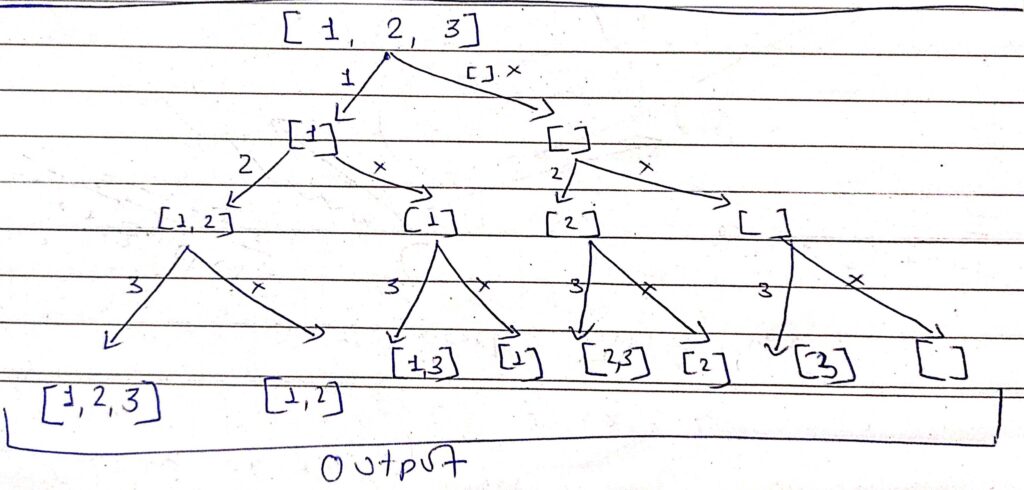 [ 1, 2, 3]
1 [ ]. x
[1] [ ]
2 x 2 x
[1,2] [1] [2] [ ]
3 x 3 x 3 x 3 x
[1,3] [1] [2,3] [2] [3] [ ]
[1,2,3] [1,2]
Output